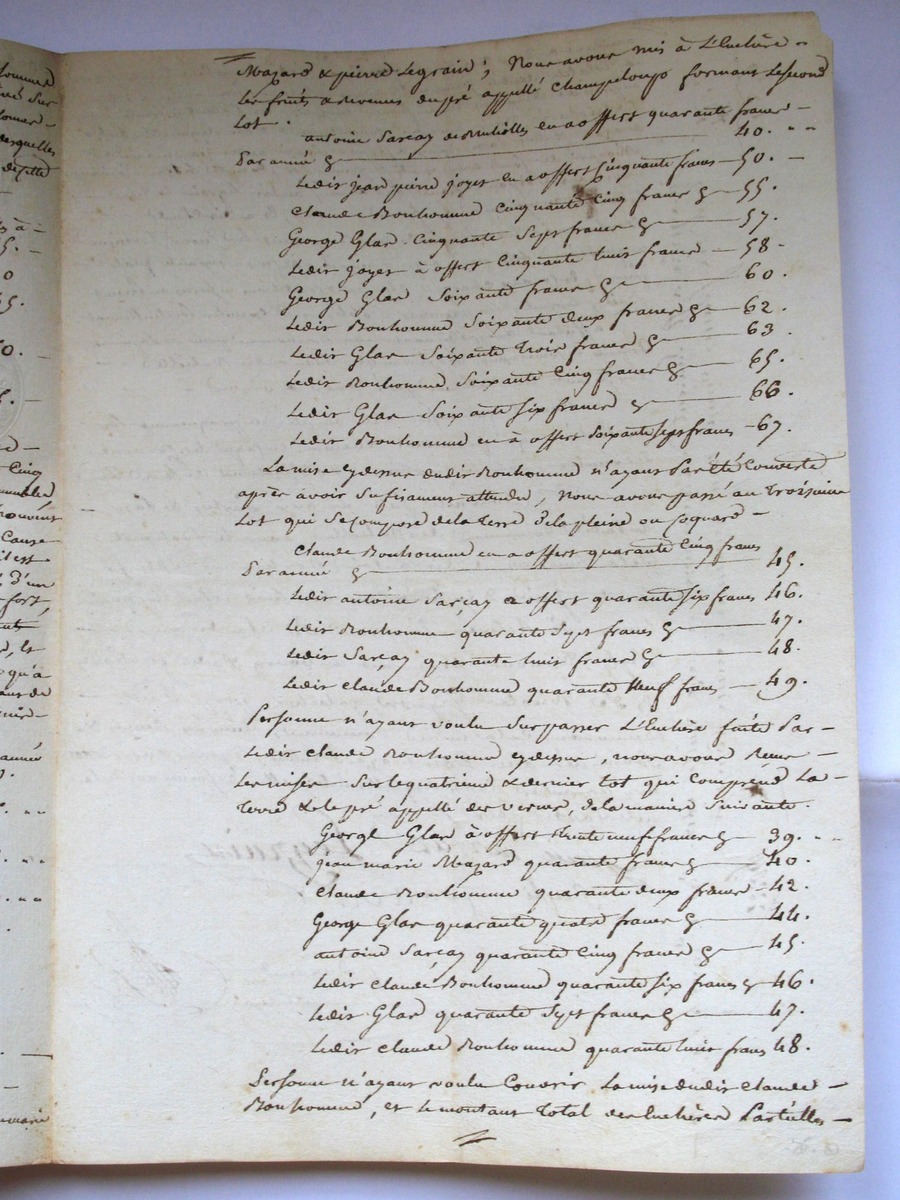 Mazard & pierre Legrain; Nous avons mis à L'Enchère
les fruits & revenus du pré appellé Champeloup formant le second
Lot.
antoine Sarçay de en a offert quarante francs
Par année 40.
Ledit jean pierre joyet en a offert Cinquante francs 50.
Claude Bonhomme Cinquante Cinq francs 55.
George Glas Cinquante Sept francs 57.
Ledit joyet à offert Cinquante huit francs 58
George Glas Soixante francs 60.
Ledit Bonhomme Soixante deux francs 62.
Ledit Glas Soixante Trois francs 63.
Ledit Bonhomme Soixante Cinq francs 65.
Ledit Glas Soixante Six francs 66.
Ledit Bonhomme en à offert Soixante Sept francs 67.
La mise cydessus dudit Bonhomme n'ayant Pas été Couverte
après avoir Sufisament attendu, Nous avons passé au Troisieme
Lot qui Se Compose de la Terre de la pleine ou
Claude Bonhomme en a offert quarante Cinq francs
Par année 45.
Ledit antoine Sarçay a offert quarante Six francs 46.
Ledit Bonhomme quarante Sept francs 47.
Ledit Sarçay quarante huit francs 48.
Ledit Claude Bonhomme quarante Neuf francs 49.
Personne n'ayant voulu Surpasser L'Enchère faite Par
Ledit Claude Bonhomme cydessus, nous avons
Les mises Sur le quatrieme & dernier Lot qui Comprend La
Terre & le pré appellé des vernes, de la maniere Suivante.
George Glas à offert trente neuf francs 39.
jean marie Mazard quarante francs 40.
Claude Bonhomme quarante deux francs 42.
George Glas quarante quatre francs 44.
antoine Sarçay quarante Cinq francs 45.
Ledit Claude Bonhomme quarante Six francs 46.
Ledit Glas quarante Sept francs 47.
Ledit Claude Bonhomme quarante huit francs 48.
Personne n'ayant voulu Couvrir La mise dudit Claude
Bonhomme, et le montant Total des Enchères Partielles